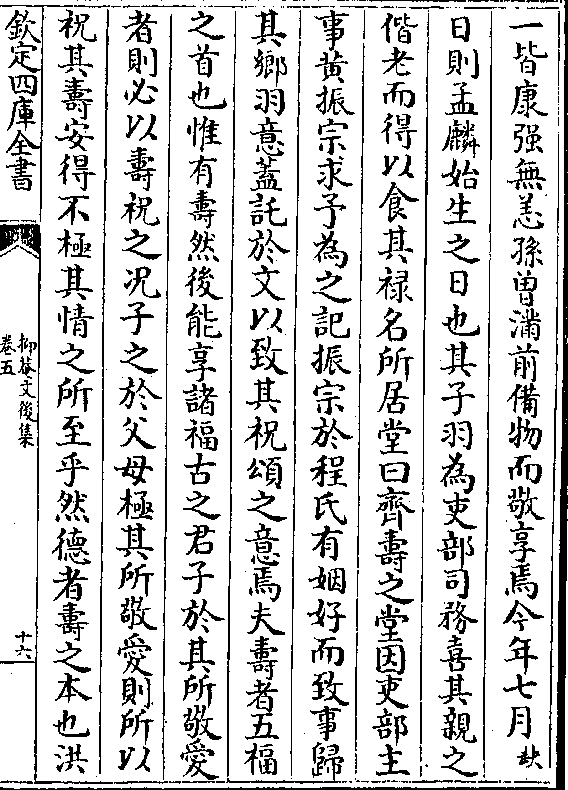 一皆康强無恙孫曽滿前備物而敬享焉今年七月闕
日則孟麟始生之日也其子羽為吏部司務喜其親之
偕老而得以食其禄名所居堂曰齊壽之堂因吏部主
事黄振宗求予為之記振宗於程氏有姻好而致事歸
其鄉羽意蓋託於文以致其祝頌之意焉夫壽者五福
之首也惟有壽然後能享諸福古之君子於其所敬愛
者則必以壽祝之况子之於父母極其所敬愛則所以
祝其壽安得不極其情之所至乎然德者壽之本也洪
欽定四庫全書
抑菴文後集
卷五
十六